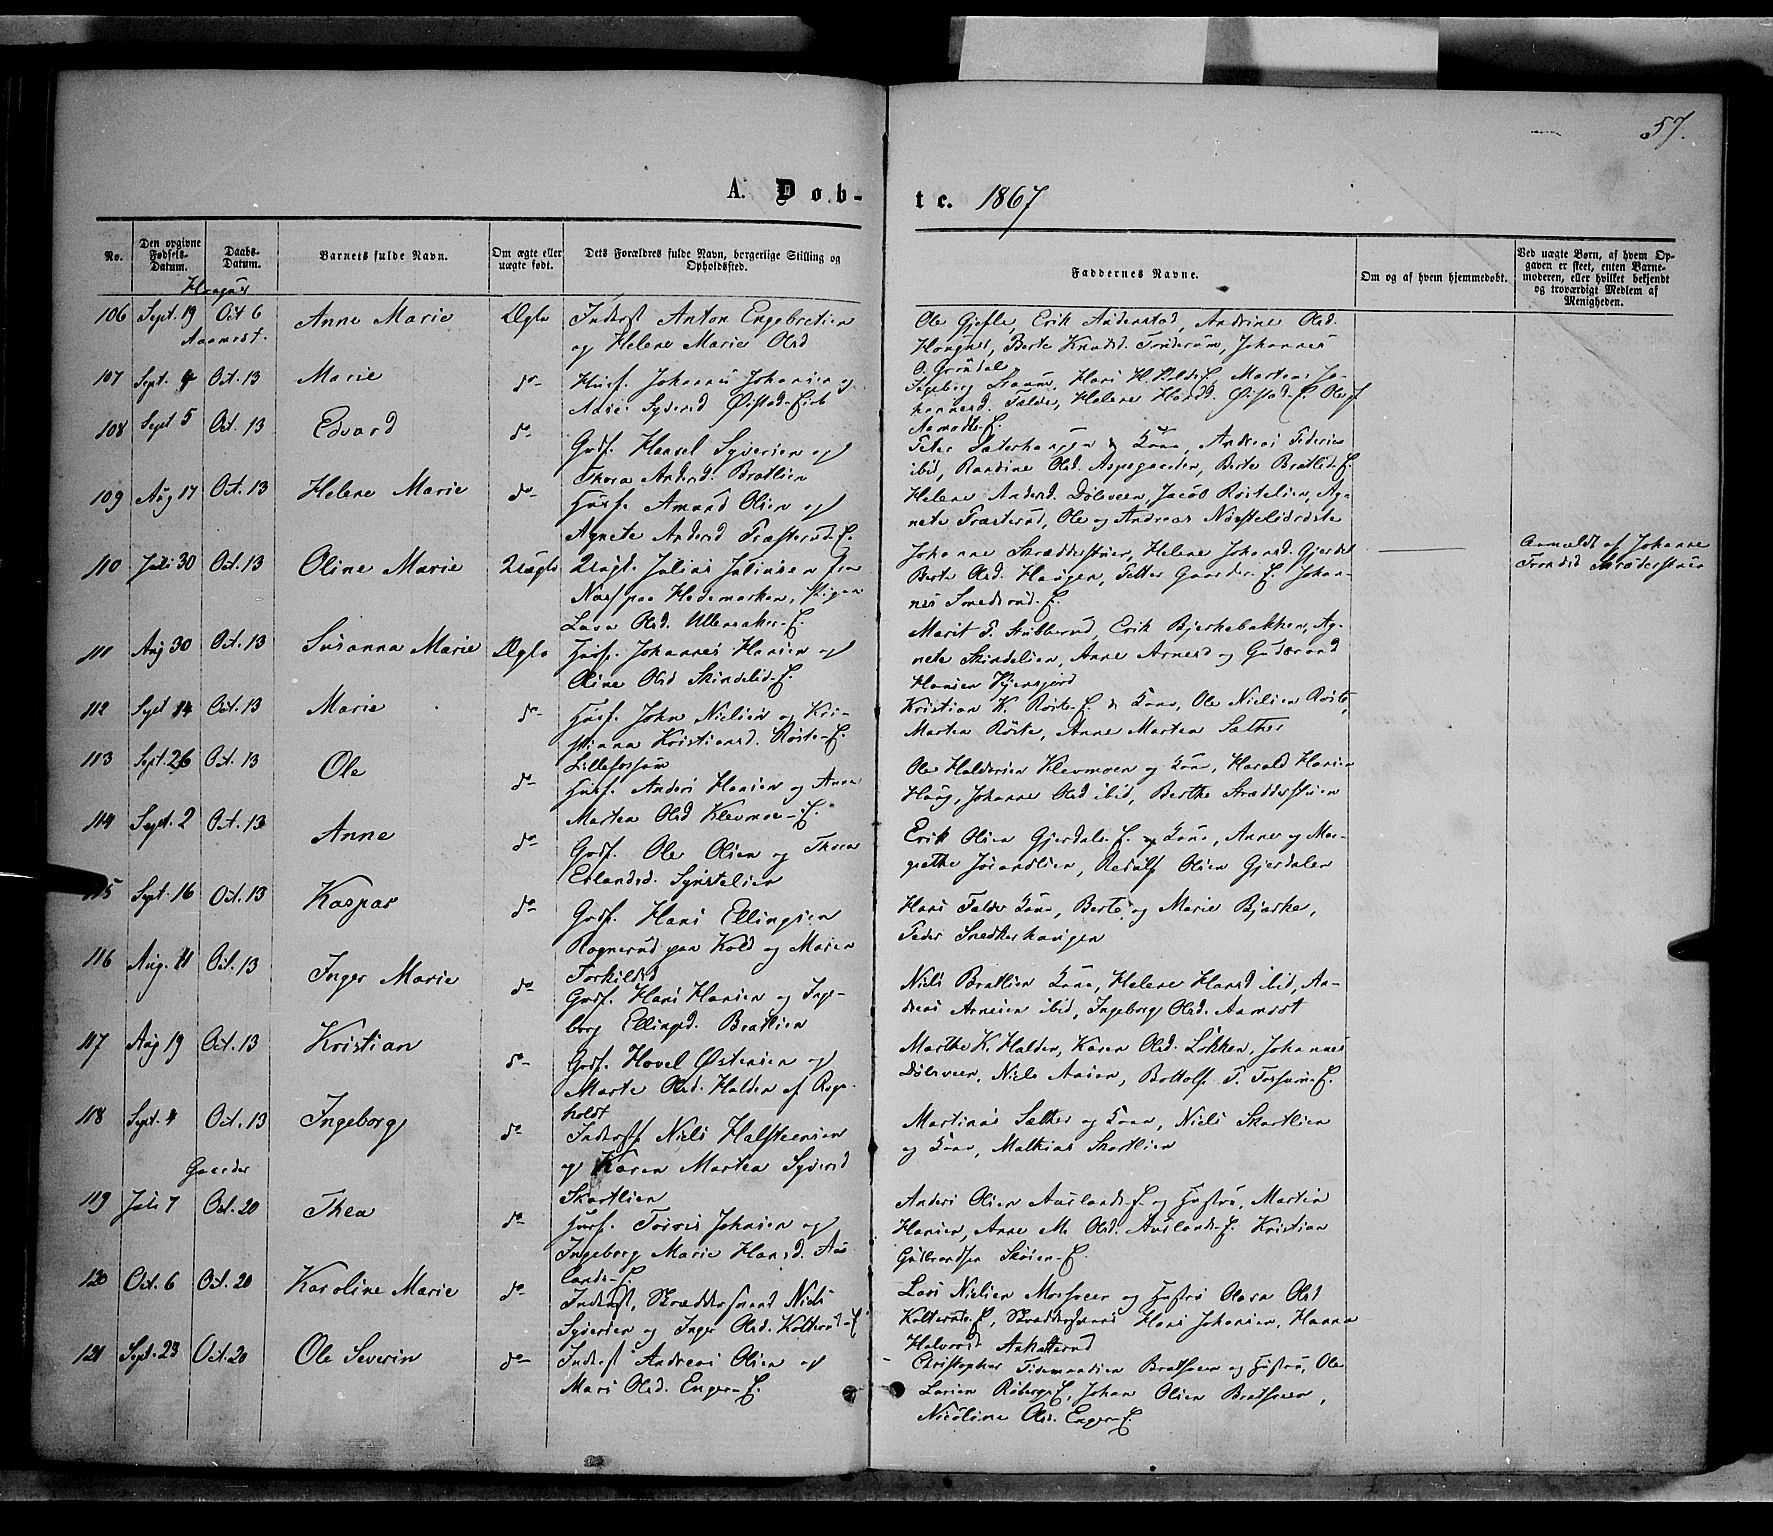 57.
A. Døb-
te. 1867
No.
Den opgivne Fødsels-Datum.
Daabs-Datum.
Barnets fulde Navn.
Om ægte eller uægte født.
Dets Forældres fulde Navn, borgerlige Stilling og Opholdssted.
Faddernes Navne.
Om og af hvem hjemmedøbt.
Ved uægte Børn, af hvem Opgaven er skeet, enten Barnemoderen, eller hvilket bekjendt og troværdigt Medlem af Menigheden.
106 Sept. 19 Oct 6 Anne Marie Ægte Inderst Anton Engebretsen
og Helene Marie Olsd
Ole Gjefle, Erik Anderstad, Andrine Olsd.
Haugner, Berte Knudsd. Tonderum, Johannes
O. Grøndal
Aamodt.
107 Sept. 4 Oct. 13 Marie do Husf. Johannes Johansen og
Syversd Øistad-E
Ingeborg Hans Marten Jo-
hannesd. Falde, Helene Hansd. Øistad-E.
108 Sept 5 Oct. 13 Edvard do
Gudf. Hansel Syversen og
Thora Andersd. Bratlien
Peter Sæterhaugen & Kone, Andreas Pedersen
ibid, Randine Olsd. Aspegaarden, Berte Bratlid-E.
109 Aug 17 Oct. 13 Helene Marie do Husf. Amund Olsen og
Agnete Andersd Træsterud-E.
Helene Andersd. Dølsveen, Jacob Røstelien, Ag-
nete Træsterud, Ole og Andreas
110 Juli 30 Oct. 13 Oline Marie Uægte Ungk. Julius Juliussen fra
Næs paa Hedemarken, Pigen
Lava Olsd. Ullensaker-E.
Johanne Skrædderstuen, Helene Johansd. Gjerdal
Berte Olsd. Haugen, Petter Gaarder-E. Johan-
nes Smedsrud-E.
Anmeldt af Johanne
Trondsd Skræderstuen
111 Aug 30 Oct. 13 Susanna Marie Ægte Husf. Johannes Hansen og
Oline Olsd Skindelid-E.
Marit P. Stubberud, Erik Bjerkebakken, Ag-
nete Skindelien, Anne Arnesd og Gudbrand
Hansen
112 Sept 14 Oct. 13 Marie do Husf. John Nielsen og Kri-
stiana Kristiansd. Røste-E.
Kristian K. Røste-E. & Kone, Ole Nielsen Røste,
Marten Røste, Anne Marten Sæther
Lillefossum
113 Sept. 26 Oct. 13 Ole do Husf. Anders Hansen og Anne
Martea Olsd Klevmoe-E.
Ole Haldorsen Klevmoen og Kone, Harald Hansen
Haug, Johanne Olsd ibid, Berthe Skrædderstuen
114 Sept. 2 Oct. 13 Anne do Gudf. Ole Olsen og Thora
Erlandsd. Synstelien
Erik Olsen Gjerdal-E. og Kone, Anne og Mar-
grethe Jørandlien, Olsen Gjerdalen
115 Sept. 16 Oct. 13 Kaspar do Gudf. Hans Ellingsen
Rognerud paa Kold og Maren
Torkildsd
Hans Falde Kone, Berte og Marie Bjerke,
Peder Snedkerhaugen
116 Aug. 11 Oct. 13 Inger Marie do Gudf. Hans Hansen og Inge-
borg Ellingsd. Bratlien
Niels Bratlien Kone, Helene Hansd ibid, An-
dreas Arnesen ibid, Ingeborg Olsd. Aamodt
117 Aug 19 Oct. 13 Kristian do Gudf. Hovel Østensen og
Marte Olsd. Halden af Rege-
holdt
Marthe K. Halden, Karen Olsd. Løkken, Johannes
Dølsveen, Niels Aasen, Bottolf P. Fossum-E.
118 Sept. 4 Oct. 13 Ingeborg do Inderst Niels Halsteensen
og Karen Martea Syversd
Skartlien
Martinus Sæther og Kone, Niels Skartlien
og Kone, Mathias Skartlien
Gaarder
119 Juli 7 Oct. 20 Thea do Husf. Johnsen og
Ingeborg Marie Hansd. Aus-
lands-E.
Anders Olsen Auslands-E. og Hustru, Martin
Hansen, Anne M. Olsd. Auslands-E. Kristian
Gulbrandsen Skøien-E.
120 Oct. 6 Oct. 20 Karoline Marie do Inderst, Skræddersvend Niels
Syversen og Inger Olsd. Kolterud-E
Lars Nielsen Mosveen og Hustru Olava Olsd
Kolterud-E, Skræddersvend Hans Johansen, Hanna
Halvorsd
121 Sept. 23 Oct. 20 Ole Severin do Inderst Andreas Olsen og
Mari Olsd. Enger-E.
Christopher Tidemandsen Bratveen og Hustru, Ole
Larsen Røberg-E, Johan Olsen Bratveen,
Nicoline Olsd. Enger-E.